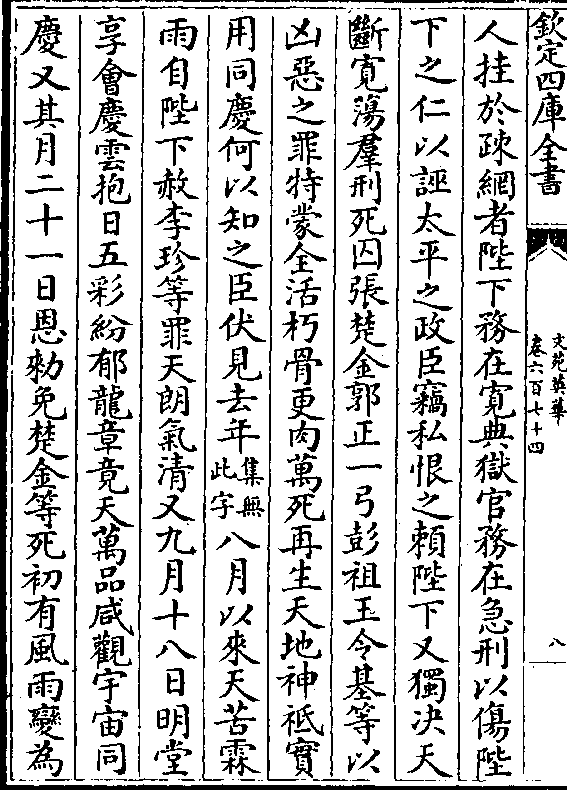 欽定四庫全書
文苑英華
卷六百七十四
八
人挂於疎網者陛下務在寬典獄官務在急刑以傷陛
下之仁以誣太平之政臣竊私恨之頼陛下又獨决天
斷寛蕩羣刑死囚張楚金郭正一弓彭祖王令基等以
凶惡之罪特蒙全活朽骨更肉萬死再生天地神祗實
用同慶何以知之臣伏見去年集無此字八月以來天苦霖
雨自陛下赦李珍等罪天朗氣清又九月十八日明堂
享會慶雲抱日五彩紛郁龍章竟天萬品咸觀宇宙同
慶又其月二十一日恩勑免楚金等死初有風雨變為